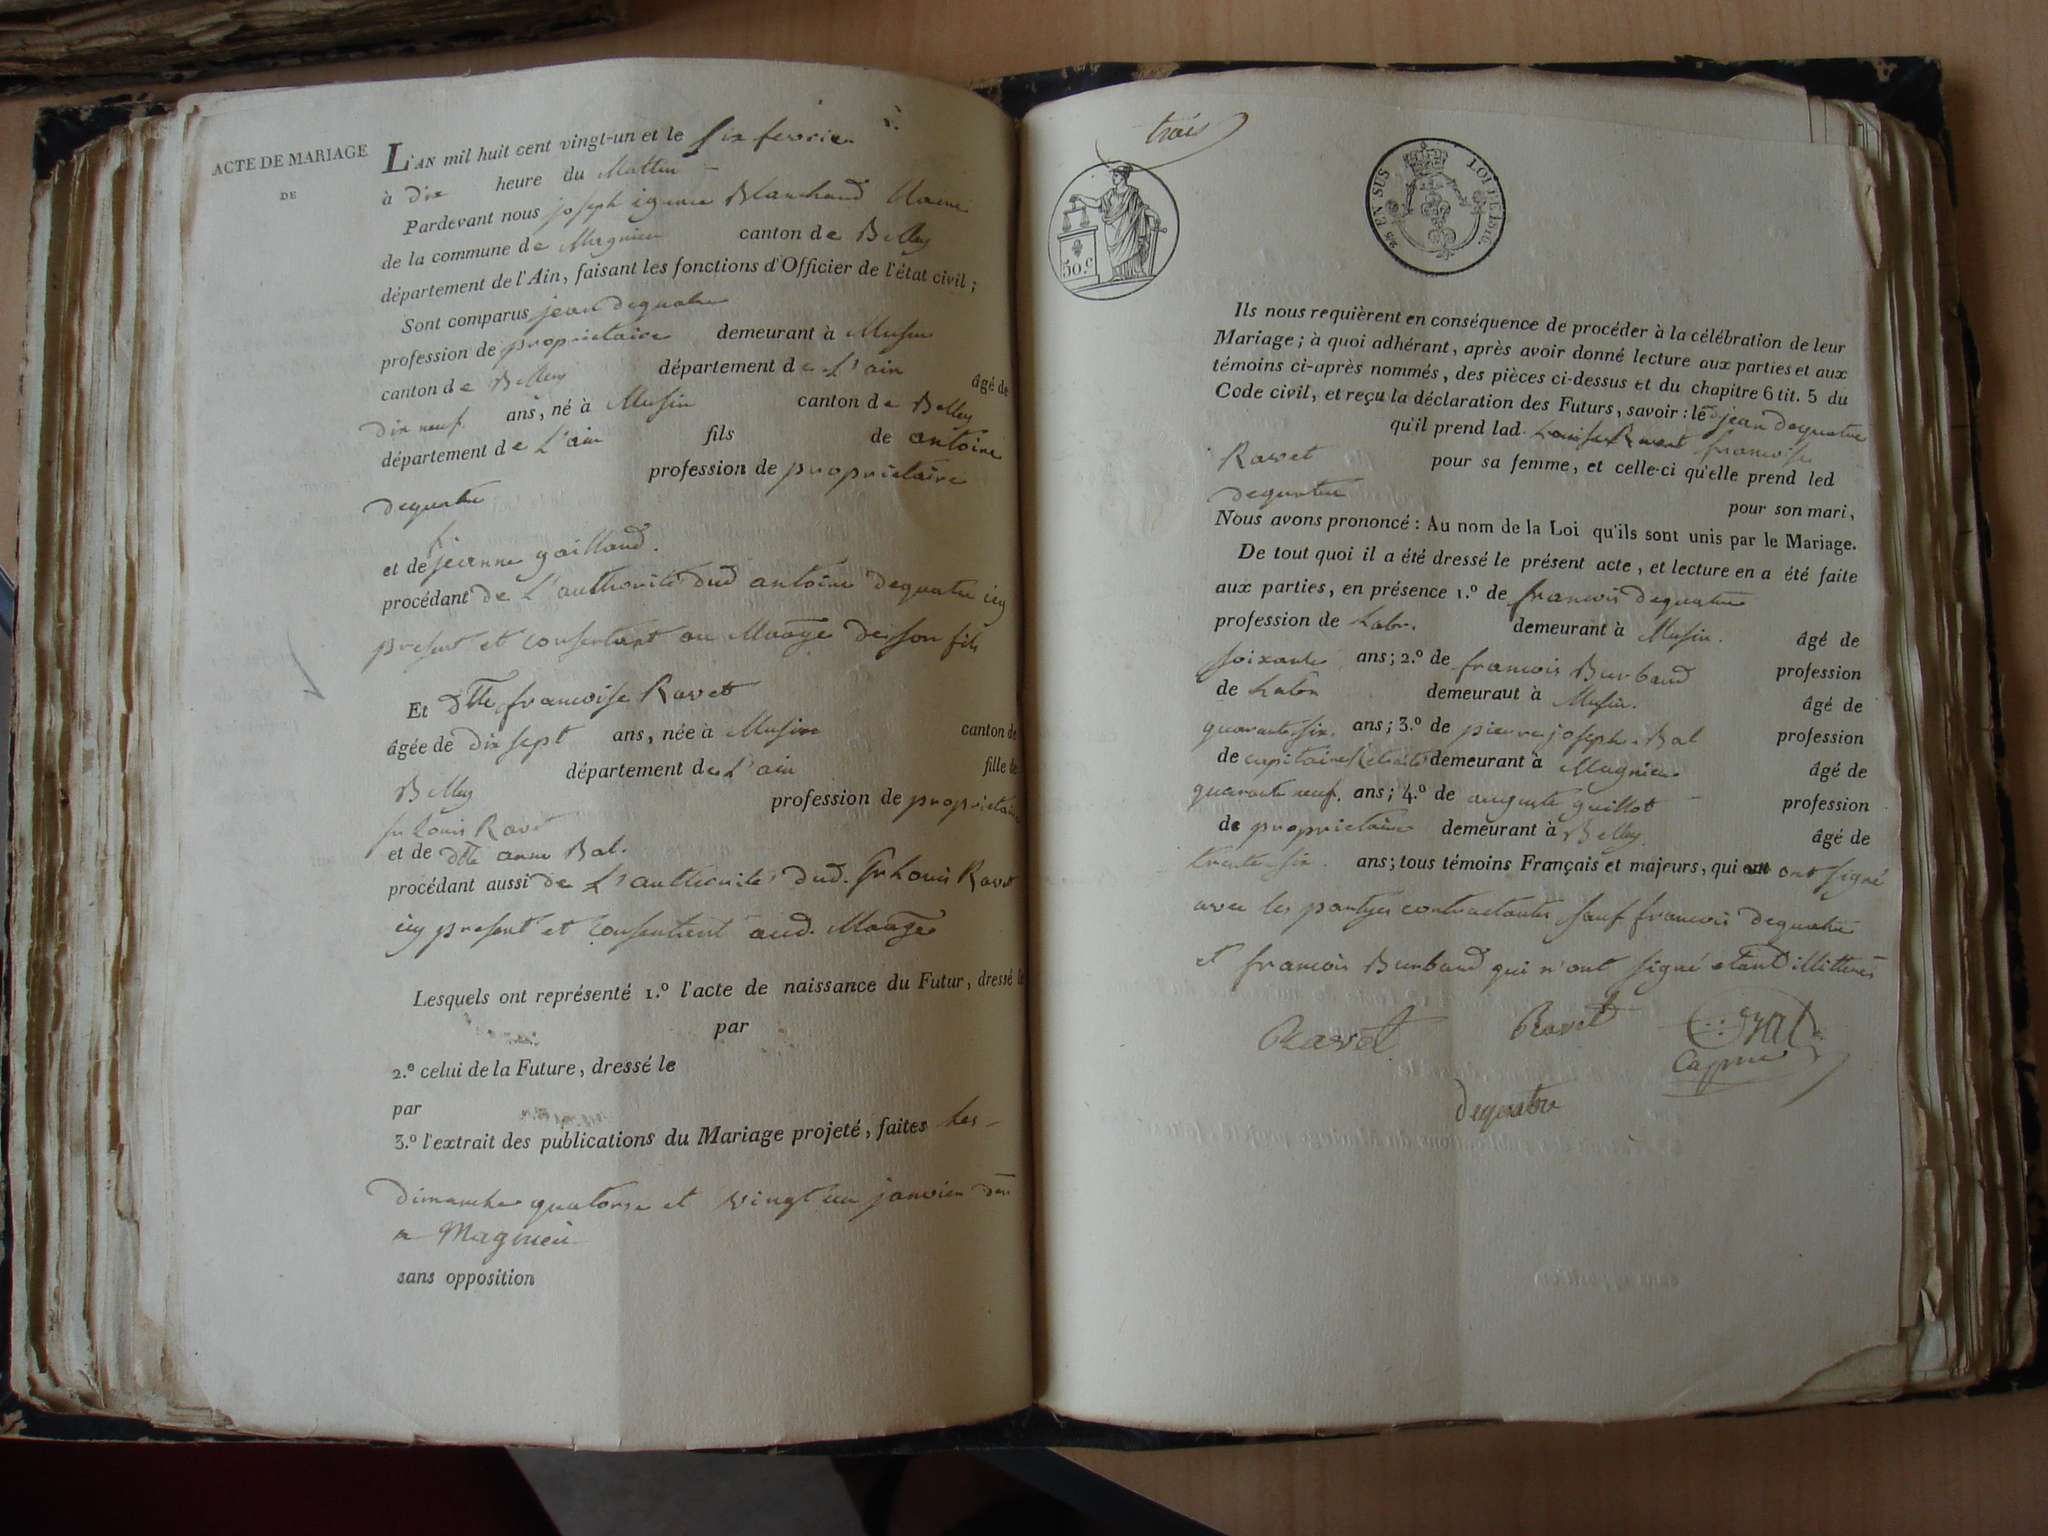 ACTE DE MARIAGE
DE
L'AN mil huit cent vingt-un et le six fevrier
à dix heure du Mattin
Pardevant nous joseph ignace Blanchard Maire
de la commune de Magnieu canton de Belley
département de l'Ain, faisant les fonctions d'Officier de l'état civil ;
Sont comparus jean dequatre
profession de proprietaire demeurant à Musin
canton de Belley département de L'ain âgé de
dix neuf. ans, né à Musin canton de Belley
département de L'ain fils de antoine
dequatre profession de proprietaire
et de jeanne gaillard.
procédant de L'authorité dud antoine dequatre icy
present et consentant au Maage de son fils
Et dlle francoise Ravet
âgée de dix sept ans, née à Musin canton de
Belley département de L'ain fille de
sr Louis Ravet profession de proprietaire
et de dlle anne Bal.
procédant aussi de L'authorité dud. Sr Louis Ravet
icy present et consentent aud. Maage
Lesquels ont représenté 1.º l'acte de naissance du Futur, dressé le
par
2.º celui de la Future, dressé le
par
3.º l'extrait des publications du Mariage projeté, faites Les
dimanche quatorse et vingt un janvier
a Magnieu
sans opposition
trois
50.c
25 EN SUS LOI DE 1816.
Ils nous requièrent en conséquence de procéder à la célébration de leur
Mariage ; à quoi adhérant, après avoir donné lecture aux parties et aux
témoins ci-après nommés, des pièces ci-dessus et du chapitre 6 tit. 5 du
Code civil, et reçu la déclaration des Futurs, savoir : led jean dequatre
qu'il prend lad. francoise
Ravet pour sa femme, et celle-ci qu'elle prend led
dequatre pour son mari,
Nous avons prononcé : Au nom de la Loi qu'ils sont unis par le Mariage.
De tout quoi il a été dressé le présent acte, et lecture en a été faite
aux parties, en présence 1.º de francois dequatre
profession de Labr. demeurant à Musin. âgé de
soixante ans ; 2.º de francois Burbaud profession
de Labr demeuraut à Musin. âgé de
quarante six. ans ; 3.º de pierre joseph Bal profession
de capitaine Retraité demeurant à Magnieu âgé de
quarante neuf. ans ; 4.º de auguste guillot profession
de proprietaire demeurant à Belley. âgé de
trente six. ans ; tous témoins Français et majeurs, qui ont ont signé
avec les partyes contractantes sauf francois dequatre
et francois Burbaud qui n'ont signé etant illitterés
Ravet Ravet Bal
Capne
dequatre